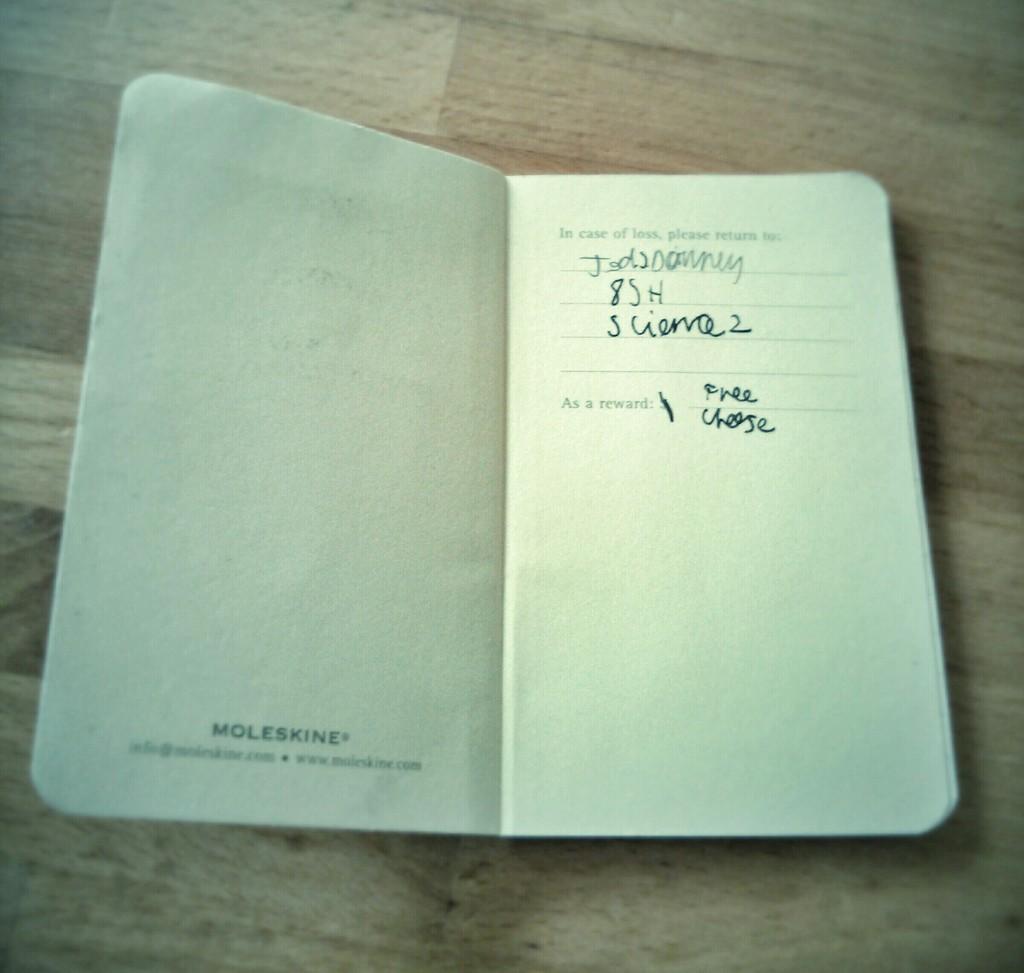 MOLESKINE®
info@moleskine.com • www.moleskine.com
In case of loss, please return to:
8SH
Science 2
As a reward:
Free
Cheese